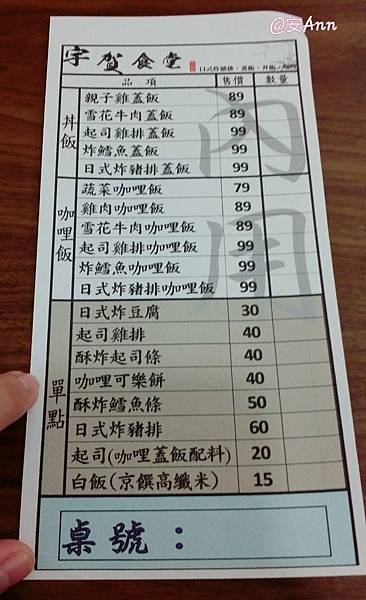 @安Ann
宇賀食堂
品項 售價 數量
丼飯
親子雞蓋飯 89
雪花牛肉蓋飯 89
起司雞排蓋飯 99
炸鱈魚蓋飯 99
日式炸豬排蓋飯 99
咖哩飯
蔬菜咖哩飯 79
雞肉咖哩飯 89
雪花牛肉咖哩飯 89
起司雞排咖哩飯 99
炸鱈魚咖哩飯 99
日式炸豬排咖哩飯 99
單點
日式炸豆腐 30
起司雞排 40
酥炸起司條 40
咖哩可樂餅 40
酥炸鱈魚條 50
日式炸豬排 60
起司(咖哩蓋飯配料) 20
白飯(京饌高纖米) 15
內用
桌號：